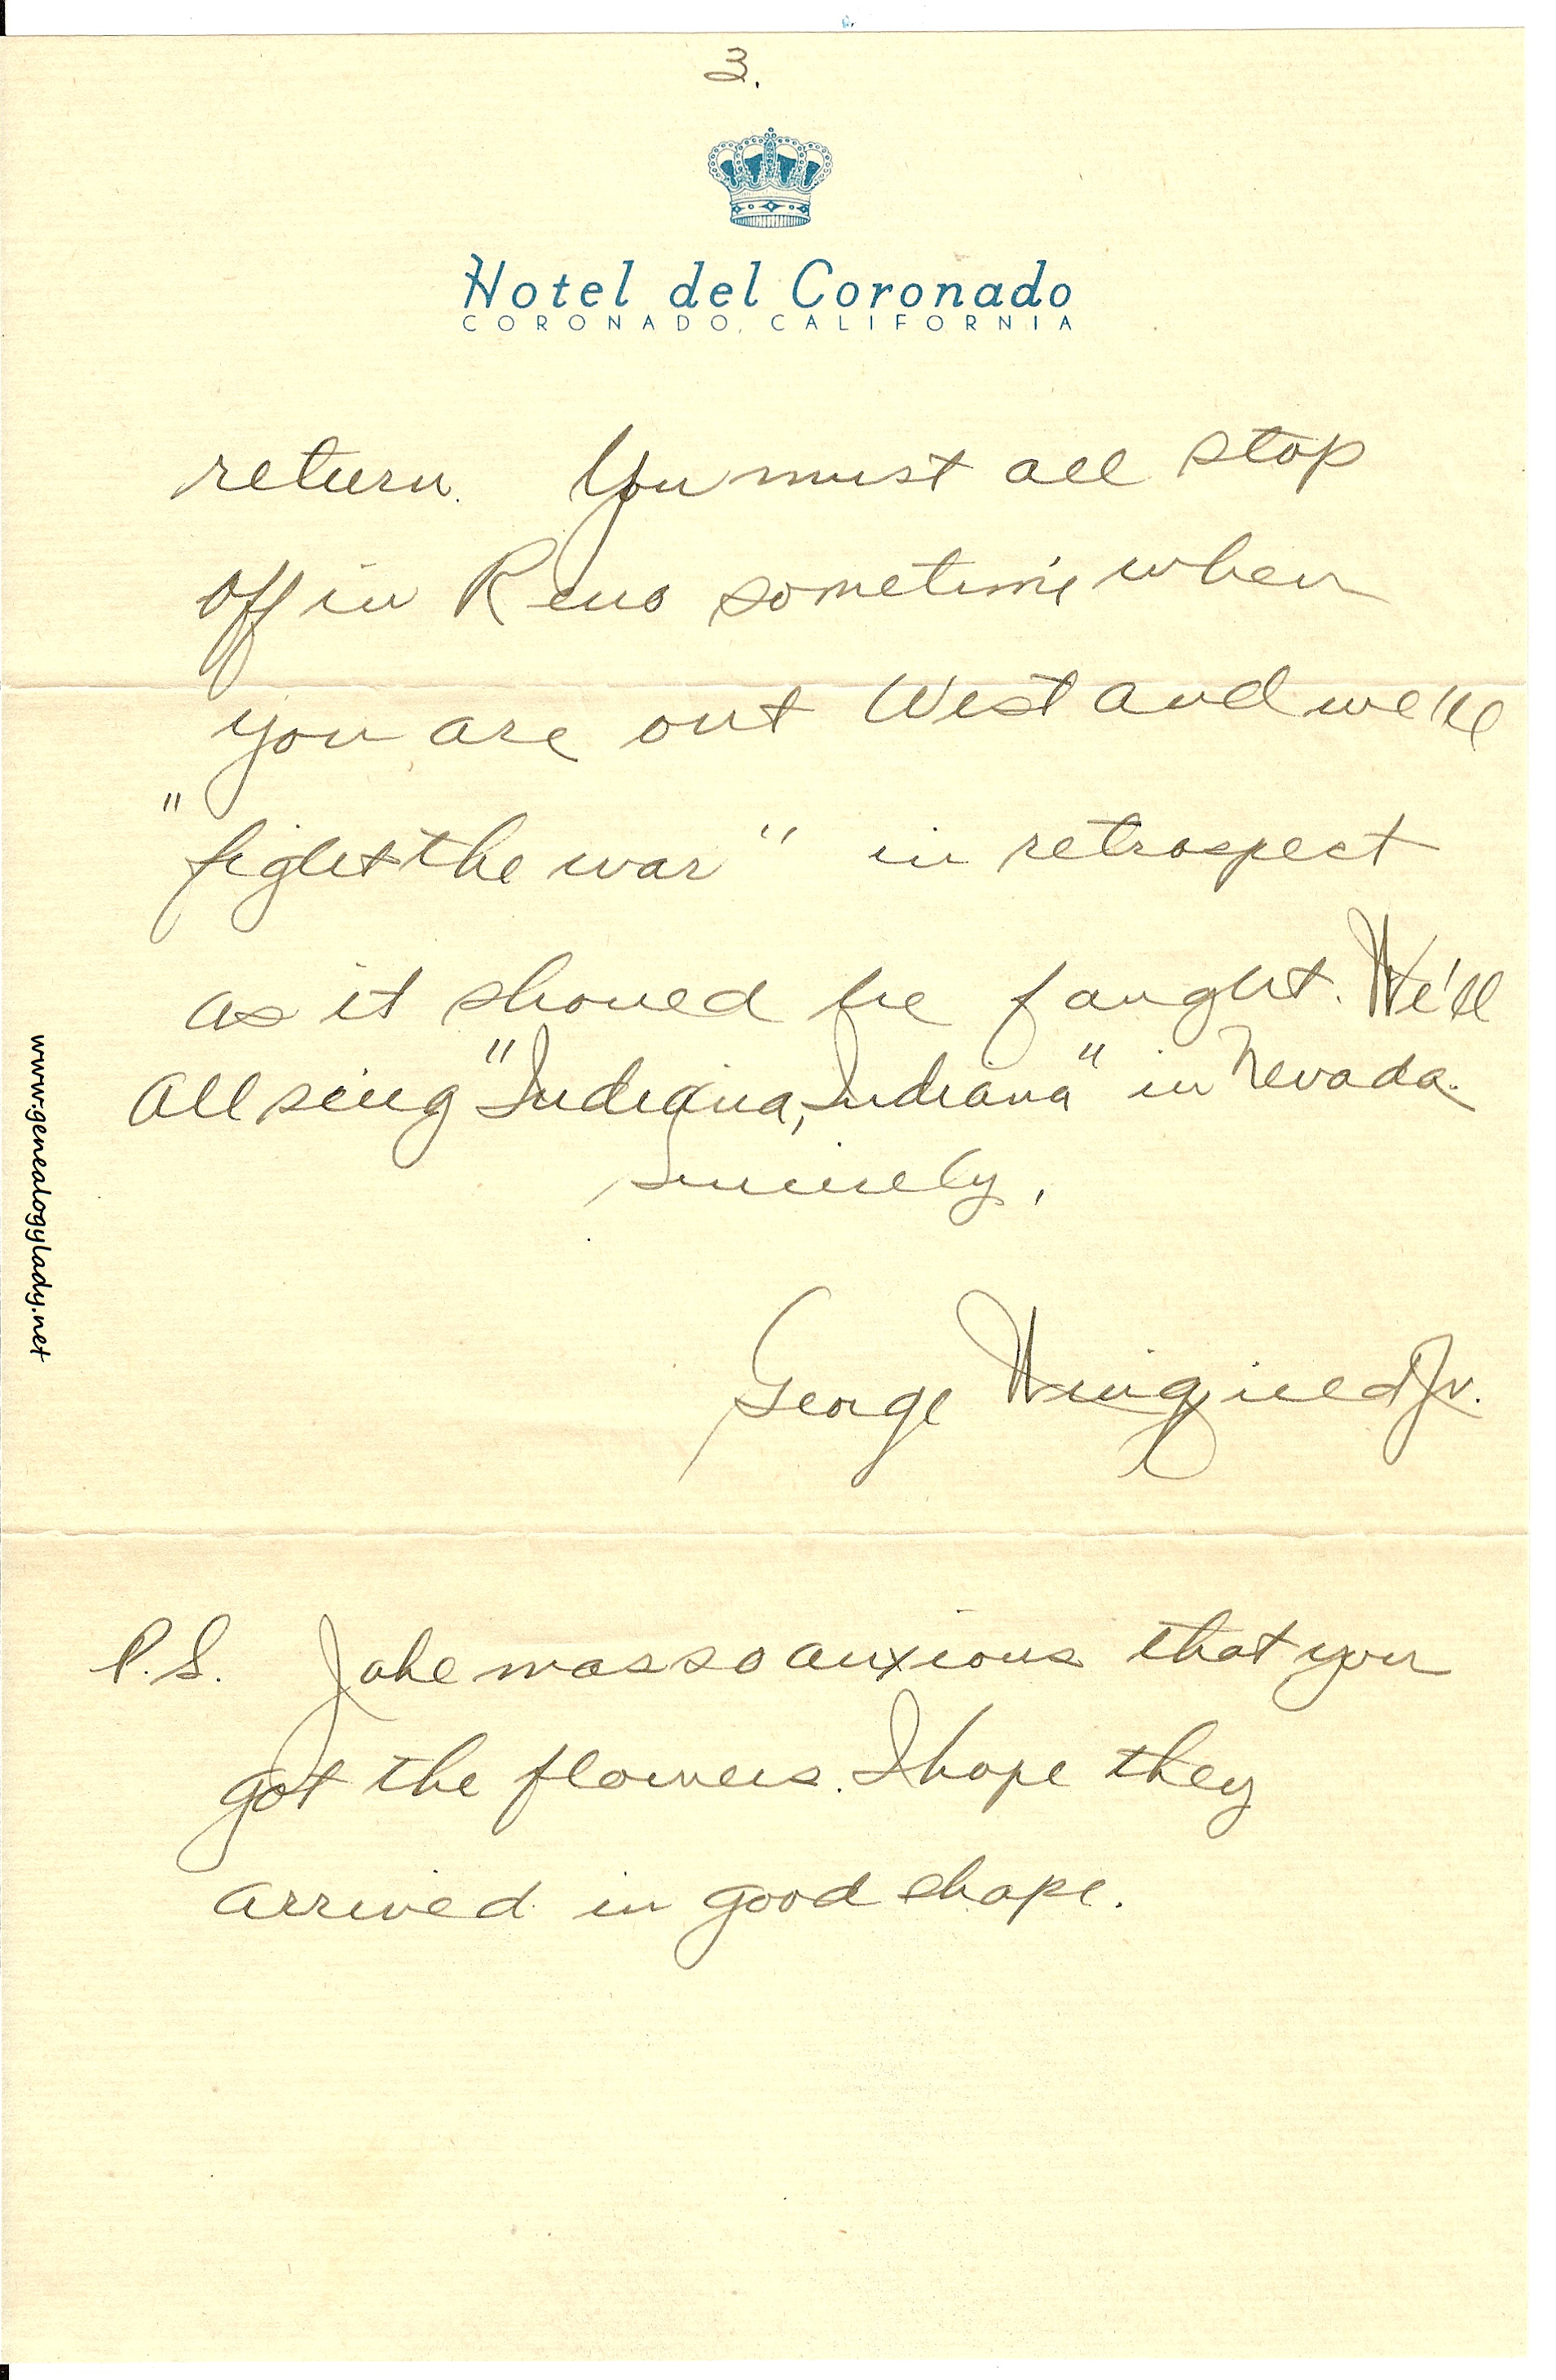 3.
Hotel del Coronado
CORONADO, CALIFORNIA
return. You must all stop
off in Reno sometime when
you are out West and we'll
"fight the war" in retrospect
as it should be fought. We'll
all sing "Indiana, Indiana" in Nevada.
Sincerely,
George Wingfield Jr.
P.S. Jake was so anxious that you
got the flowers. I hope they
arrived in good shape.
www.genealogylady.net